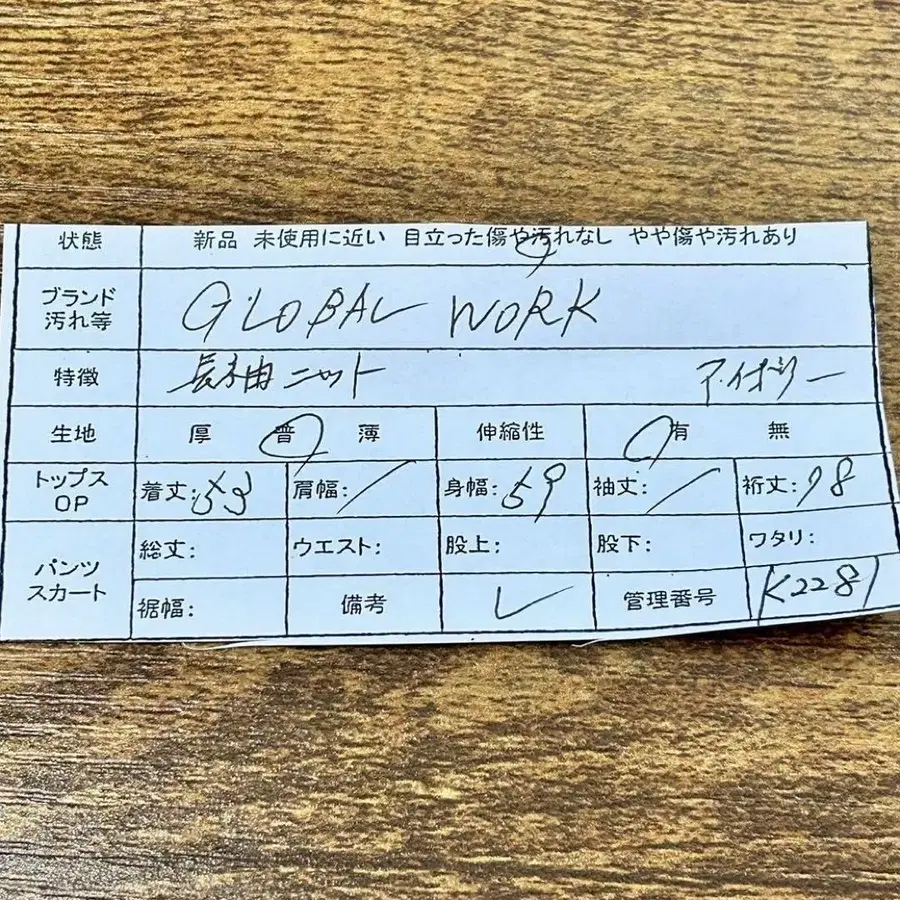 状態 新品 未使用に近い 目立った傷や汚れなし やや傷や汚れあり
ブランド 汚れ等 GLOBAL WORK
特徴 長袖ニット アイボリー
生地 厚 普 薄 伸縮性 有 無
トップス OP 着丈:53 肩幅:/ 身幅:59 袖丈:/ 裄丈:78
パンツ スカート 総丈: ウエスト: 股上: 股下: ワタリ:
裾幅: 備考 レ 管理番号 K2281